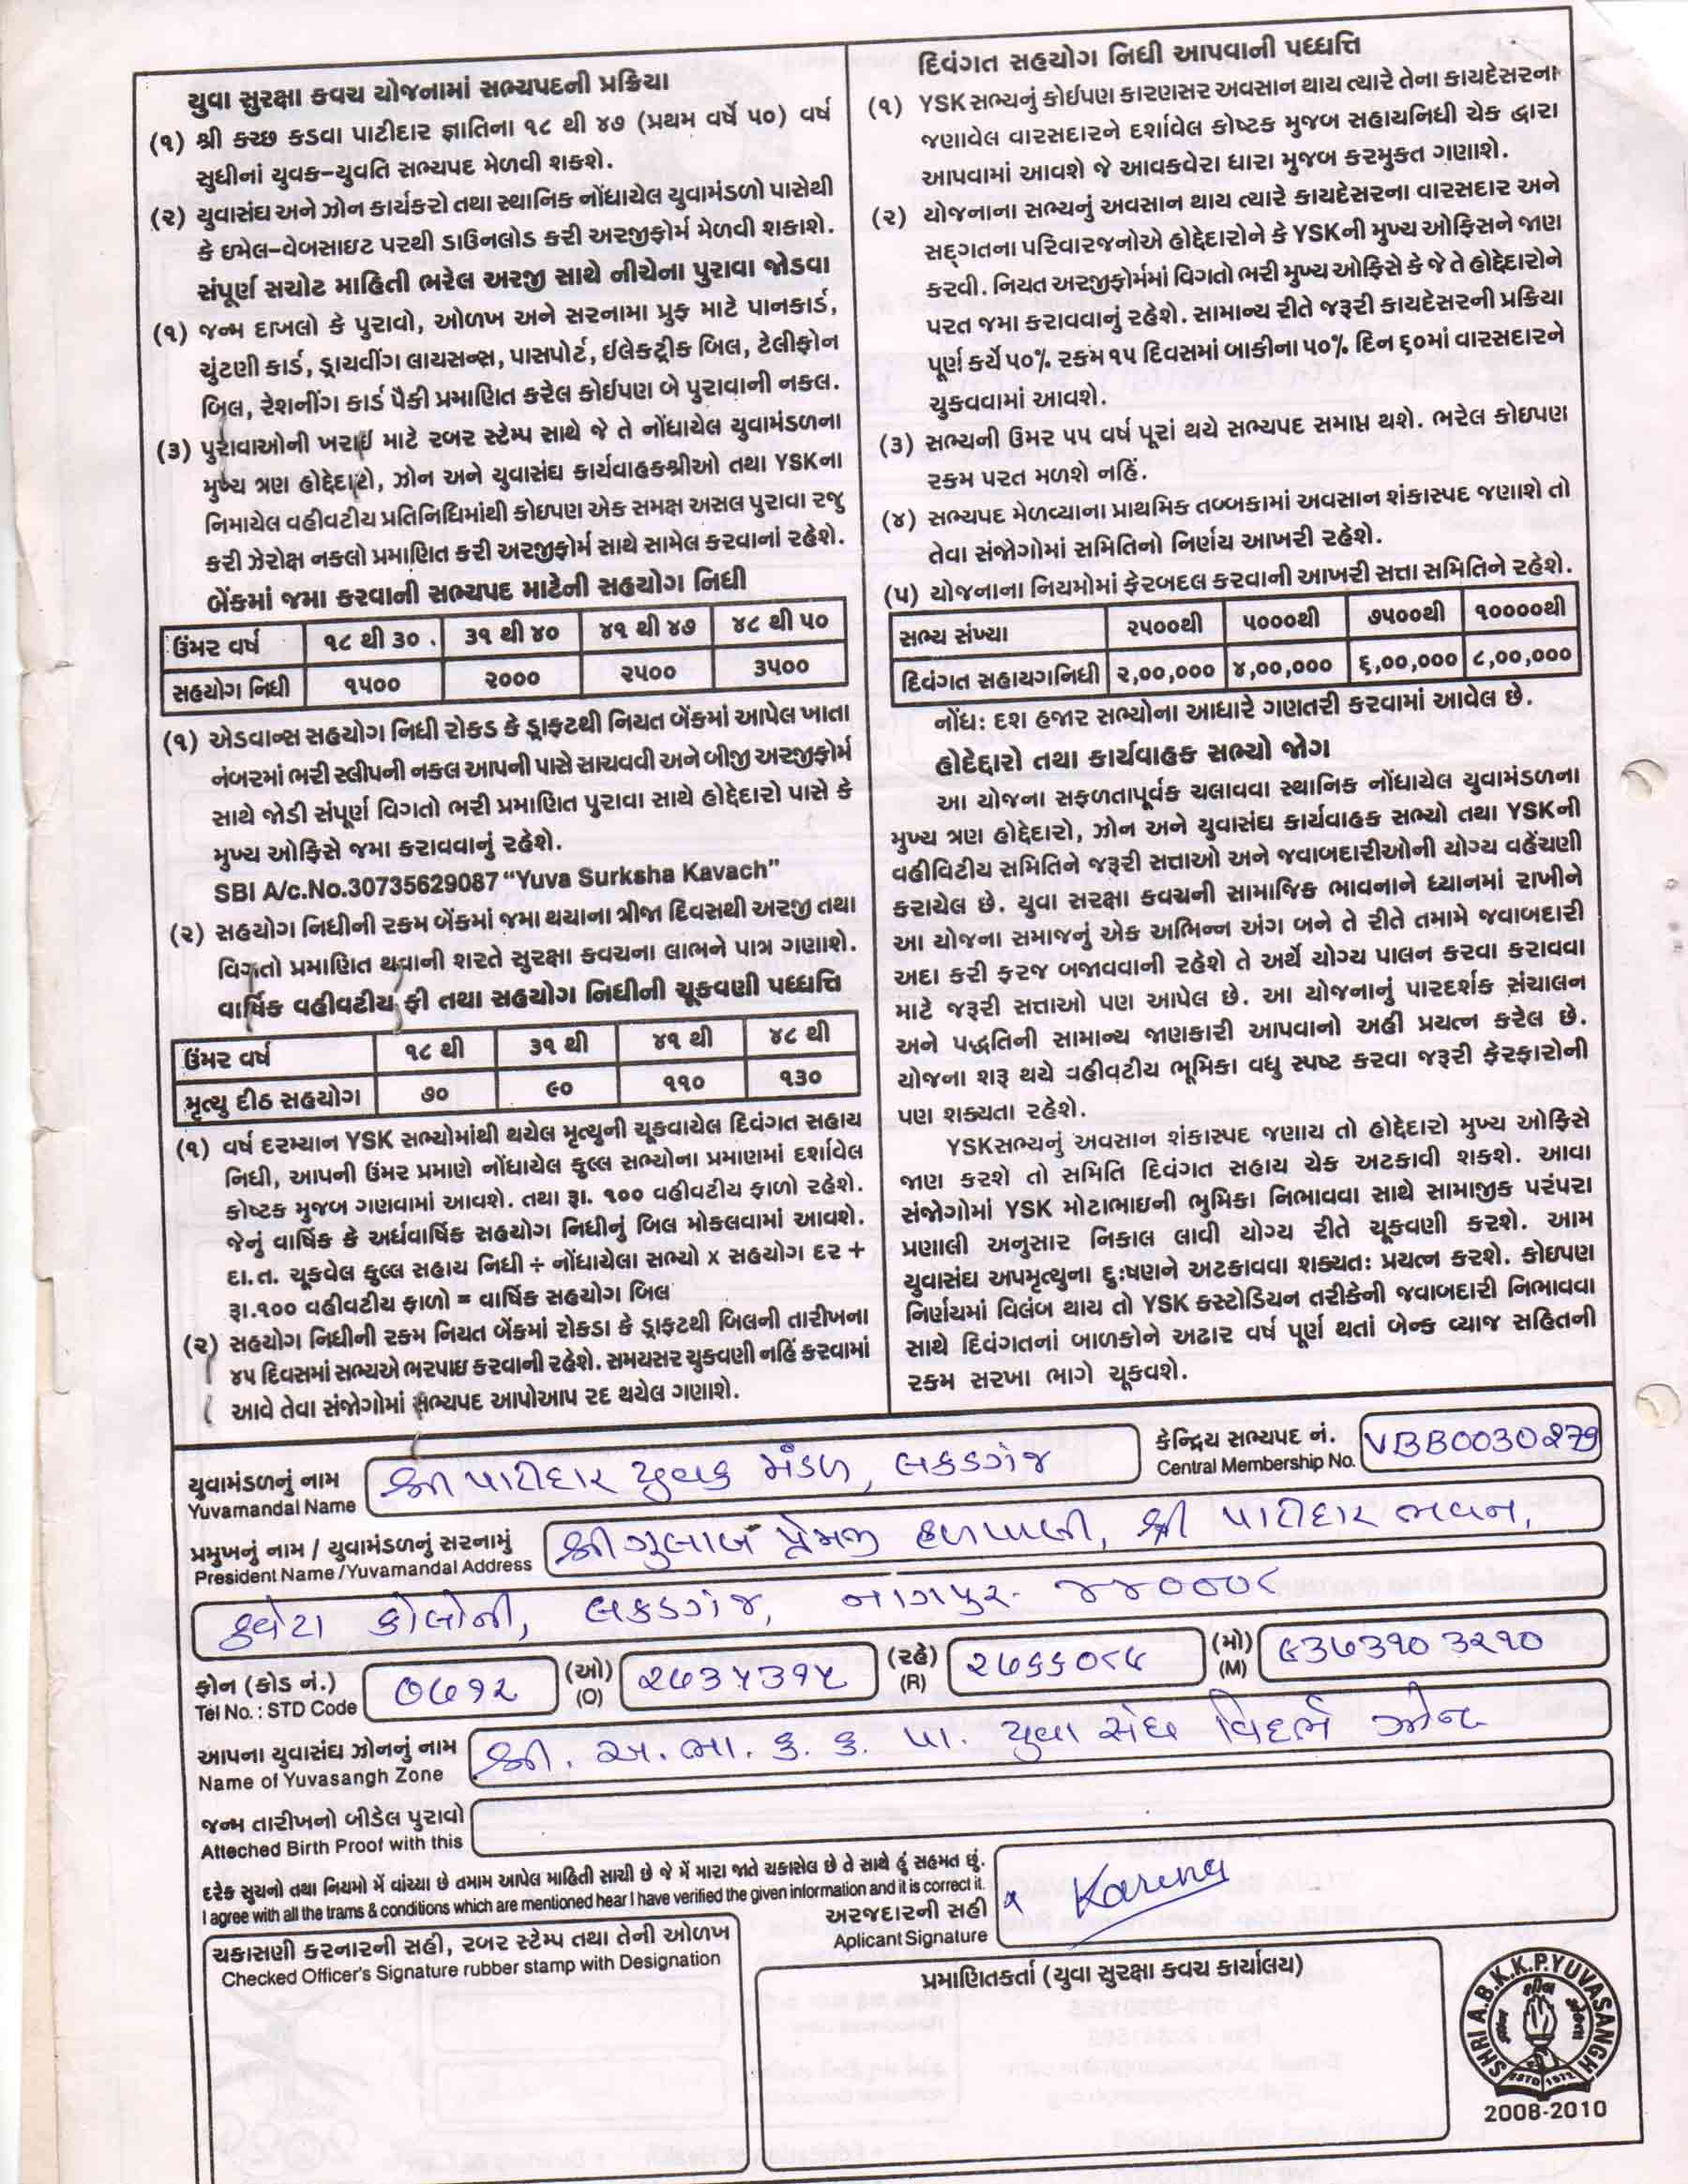 યુવા સુરક્ષા કવચ યોજનામાં સભ્યપદની પ્રક્રિયા
(૧) શ્રી કચ્છ કડવા પાટીદાર જ્ઞાતિના ૧૮ થી ૪૭ (પ્રથમ વર્ષે ૫૦) વર્ષ
સુધીનાં યુવક-યુવતિ સભ્યપદ મેળવી શકશે.
(૨) યુવાસંઘ અને ઝોન કાર્યકરો તથા સ્થાનિક નોંધાયેલ યુવામંડળો પાસેથી
કે ઇમેલ-વેબસાઇટ પરથી ડાઉનલોડ કરી અરજીફોર્મ મેળવી શકાશે.
સંપૂર્ણ સચોટ માહિતી ભરેલ અરજી સાથે નીચેના પુરાવા જોડવા
(૧) જન્મ દાખલો કે પુરાવો, ઓળખ અને સરનામા પ્રુફ માટે પાનકાર્ડ,
ચુંટણી કાર્ડ, ડ્રાયવીંગ લાયસન્સ, પાસપોર્ટ, ઈલેકટ્રીક બિલ, ટેલીફોન
બિલ, રેશનીંગ કાર્ડ પૈકી પ્રમાણિત કરેલ કોઈપણ બે પુરાવાની નકલ.
(૩) પુરાવાઓની ખરાઇ માટે રબર સ્ટેમ્પ સાથે જે તે નોંધાયેલ યુવામંડળના
મુખ્ય ત્રણ હોદ્દેદારો, ઝોન અને યુવાસંઘ કાર્યવાહકશ્રીઓ તથા YSKના
નિમાયેલ વહીવટીય પ્રતિનિધિમાંથી કોઇપણ એક સમક્ષ અસલ પુરાવા રજુ
કરી ઝેરોક્ષ નકલો પ્રમાણિત કરી અરજીફોર્મ સાથે સામેલ કરવાનાં રહેશે.
બેંકમાં જમા કરવાની સભ્યપદ માટેની સહયોગ નિધી
ઉંમર વર્ષ ૧૮ થી ૩૦ ૩૧ થી ૪૦ ૪૧ થી ૪૭ ૪૮ થી ૫૦
સહયોગ નિધી ૧૫૦૦ ૨૦૦૦ ૨૫૦૦ ૩૫૦૦
(૧) એડવાન્સ સહયોગ નિધી રોકડ કે ડ્રાફટથી નિયત બેંકમાં આપેલ ખાતા
નંબરમાં ભરી સ્લીપની નકલ આપની પાસે સાચવવી અને બીજી અરજીફોર્મ
સાથે જોડી સંપૂર્ણ વિગતો ભરી પ્રમાણિત પુરાવા સાથે હોદ્દેદારો પાસે કે
મુખ્ય ઓફિસે જમા કરાવવાનું રહેશે.
SBI A/c.No.30735629087 “Yuva Surksha Kavach”
(૨) સહયોગ નિધીની રકમ બેંકમાં જમા થયાના ત્રીજા દિવસથી અરજી તથા
વિગતો પ્રમાણિત થવાની શરતે સુરક્ષા કવચના લાભને પાત્ર ગણાશે.
વાર્ષિક વહીવટીય ફી તથા સહયોગ નિધીની ચૂકવણી પધ્ધત્તિ
ઉંમર વર્ષ ૧૮ થી ૩૧ થી ૪૧ થી ૪૮ થી
મૃત્યુ દીઠ સહયોગ ૭૦ ૯૦ ૧૧૦ ૧૩૦
(૧) વર્ષ દરમ્યાન YSK સભ્યોમાંથી થયેલ મૃત્યુની ચૂકવાયેલ દિવંગત સહાય
નિધી, આપની ઉંમર પ્રમાણે નોંધાયેલ કુલ્લ સભ્યોના પ્રમાણમાં દર્શાવેલ
કોષ્ટક મુજબ ગણવામાં આવશે. તથા રૂા. ૧૦૦ વહીવટીય ફાળો રહેશે.
જેનું વાર્ષિક કે અર્ધવાર્ષિક સહયોગ નિધીનું બિલ મોકલવામાં આવશે.
દા.ત. ચૂકવેલ કુલ્લ સહાય નિધી ÷ નોંધાયેલા સભ્યો x સહયોગ દર +
રૂા.૧૦૦ વહીવટીય ફાળો = વાર્ષિક સહયોગ બિલ
(૨) સહયોગ નિધીની રકમ નિયત બેંકમાં રોકડા કે ડ્રાફટથી બિલની તારીખના
૪૫ દિવસમાં સભ્યએ ભરપાઇ કરવાની રહેશે. સમયસર ચુકવણી નહિં કરવામાં
આવે તેવા સંજોગોમાં સભ્યપદ આપોઆપ રદ થયેલ ગણાશે.
દિવંગત સહયોગ નિધી આપવાની પધ્ધત્તિ
(૧) YSK સભ્યનું કોઈપણ કારણસર અવસાન થાય ત્યારે તેના કાયદેસરના
જણાવેલ વારસદારને દર્શાવેલ કોષ્ટક મુજબ સહાયનિધી ચેક દ્વારા
આપવામાં આવશે જે આવકવેરા ધારા મુજબ કરમુકત ગણાશે.
(૨) યોજનાના સભ્યનું અવસાન થાય ત્યારે કાયદેસરના વારસદાર અને
સદ્‌ગતના પરિવારજનોએ હોદ્દેદારોને કે YSKની મુખ્ય ઓફિસને જાણ
કરવી. નિયત અરજીફોર્મમાં વિગતો ભરી મુખ્ય ઓફિસે કે જે તે હોદ્દેદારોને
પરત જમા કરાવવાનું રહેશે. સામાન્ય રીતે જરૂરી કાયદેસરની પ્રક્રિયા
પૂર્ણ કર્યે ૫૦% રકમ ૧૫ દિવસમાં બાકીના ૫૦% દિન ૬૦માં વારસદારને
ચુકવવામાં આવશે.
(૩) સભ્યની ઉંમર ૫૫ વર્ષ પૂરાં થયે સભ્યપદ સમાપ્ત થશે. ભરેલ કોઇપણ
રકમ પરત મળશે નહિં.
(૪) સભ્યપદ મેળવ્યાના પ્રાથમિક તબ્બકામાં અવસાન શંકાસ્પદ જણાશે તો
તેવા સંજોગોમાં સમિતિનો નિર્ણય આખરી રહેશે.
(૫) યોજનાના નિયમોમાં ફેરબદલ કરવાની આખરી સત્તા સમિતિને રહેશે.
સભ્ય સંખ્યા ૨૫૦૦થી ૫૦૦૦થી ૭૫૦૦થી ૧૦૦૦૦થી
દિવંગત સહાયગનિધી ૨,૦૦,૦૦૦ ૪,૦૦,૦૦૦ ૬,૦૦,૦૦૦ ૮,૦૦,૦૦૦
નોંધ: દશ હજાર સભ્યોના આધારે ગણતરી કરવામાં આવેલ છે.
હોદેદ્દારો તથા કાર્યવાહક સભ્યો જોગ
આ યોજના સફળતાપૂર્વક ચલાવવા સ્થાનિક નોંધાયેલ યુવામંડળના
મુખ્ય ત્રણ હોદ્દેદારો, ઝોન અને યુવાસંઘ કાર્યવાહક સભ્યો તથા YSKની
વહીવિટીય સમિતિને જરૂરી સત્તાઓ અને જવાબદારીઓની યોગ્ય વહેંચણી
કરાયેલ છે. યુવા સરક્ષા કવચની સામાજિક ભાવનાને ધ્યાનમાં રાખીને
આ યોજના સમાજનું એક અભિન્ન અંગ બને તે રીતે તમામે જવાબદારી
અદા કરી ફરજ બજાવવાની રહેશે તે અર્થે યોગ્ય પાલન કરવા કરાવવા
માટે જરૂરી સત્તાઓ પણ આપેલ છે. આ યોજનાનું પારદર્શક સંચાલન
અને પદ્ધતિની સામાન્ય જાણકારી આપવાનો અહી પ્રયત્ન કરેલ છે.
યોજના શરૂ થયે વહીવટીય ભૂમિકા વધુ સ્પષ્ટ કરવા જરૂરી ફેરફારોની
પણ શક્યતા રહેશે.
YSKસભ્યનું અવસાન શંકાસ્પદ જણાય તો હોદ્દેદારો મુખ્ય ઓફિસે
જાણ કરશે તો સમિતિ દિવંગત સહાય ચેક અટકાવી શકશે. આવા
સંજોગોમાં YSK મોટાભાઇની ભુમિકા નિભાવવા સાથે સામાજીક પરંપરા
પ્રણાલી અનુસાર નિકાલ લાવી યોગ્ય રીતે ચૂકવણી કરશે. આમ
યુવાસંઘ અપમૃત્યુના દુઃષણને અટકાવવા શક્યતઃ પ્રયત્ન કરશે. કોઇપણ
નિર્ણયમાં વિલંબ થાય તો YSK કસ્ટોડિયન તરીકેની જવાબદારી નિભાવવા
સાથે દિવંગતનાં બાળકોને અઢાર વર્ષ પૂર્ણ થતાં બેન્ક વ્યાજ સહિતની
રકમ સરખા ભાગે ચૂકવશે.
યુવામંડળનું નામ શ્રી પાટીદાર યુવક મંડળ, લકડગંજ કેન્દ્રિય સભ્યપદ નં. VBB0030279
Yuvamandal Name Central Membership No.
પ્રમુખનું નામ / યુવામંડળનું સરનામું શ્રી ગુલાબ પ્રેમજી હળપાણી, શ્રી પાટીદાર ભવન,
President Name /Yuvamandal Address
ક્વેટા કોલોની, લકડગંજ, નાગપુર- ૪૪૦૦૦૮
ફોન (કોડ નં.) ૦૭૧૨ (ઓ) ૨૭૩૫૩૧૫ (રહે) ૨૭૬૬૦૮૬ (મો) ૯૩૭૩૧૦૩૨૧૦
Tel No. : STD Code (O) (R) (M)
આપના યુવાસંઘ ઝોનનું નામ શ્રી. અ. ભા. ક. ક. પા. યુવા સંઘ વિદર્ભ ઝોન
Name of Yuvasangh Zone
જન્મ તારીખનો બીડેલ પુરાવો
Atteched Birth Proof with this
દરેક સુચનો તથા નિયમો મેં વાંચ્યા છે તમામ આપેલ માહિતી સાચી છે જે મેં મારા જાતે ચકાસેલ છે તે સાથે હું સહમત છું.
I agree with all the trams & conditions which are mentioned hear I have verified the given information and it is correct it.
અરજદારની સહી x Karena
Aplicant Signature
ચકાસણી કરનારની સહી, રબર સ્ટેમ્પ તથા તેની ઓળખ
Checked Officer's Signature rubber stamp with Designation
પ્રમાણિતકર્તા (યુવા સુરક્ષા કવચ કાર્યાલય)
SHRI A.B.K.K.P.YUVASANGH
ESTD 1972
2008-2010